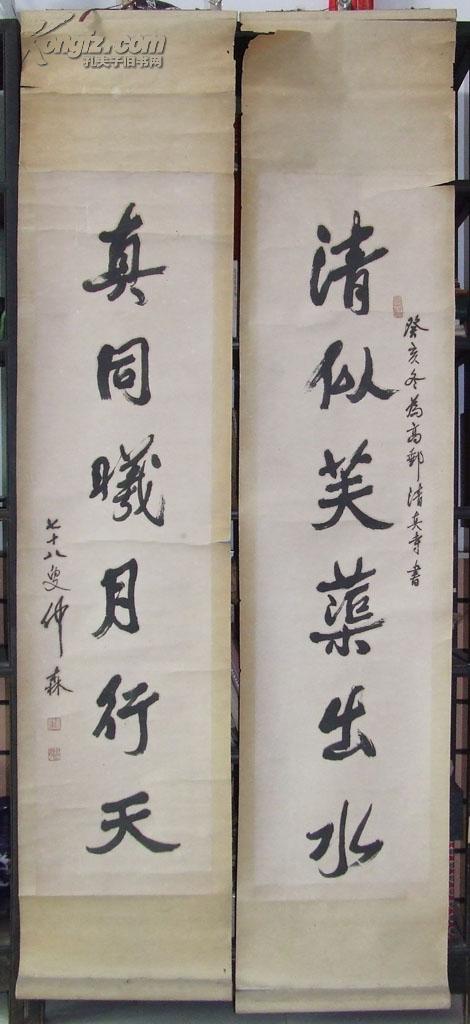 清似芙蕖出水
癸亥冬為高郵清真寺書
真同曦月行天
七十八叟仲森
Kongfz.com
孔夫子旧书网